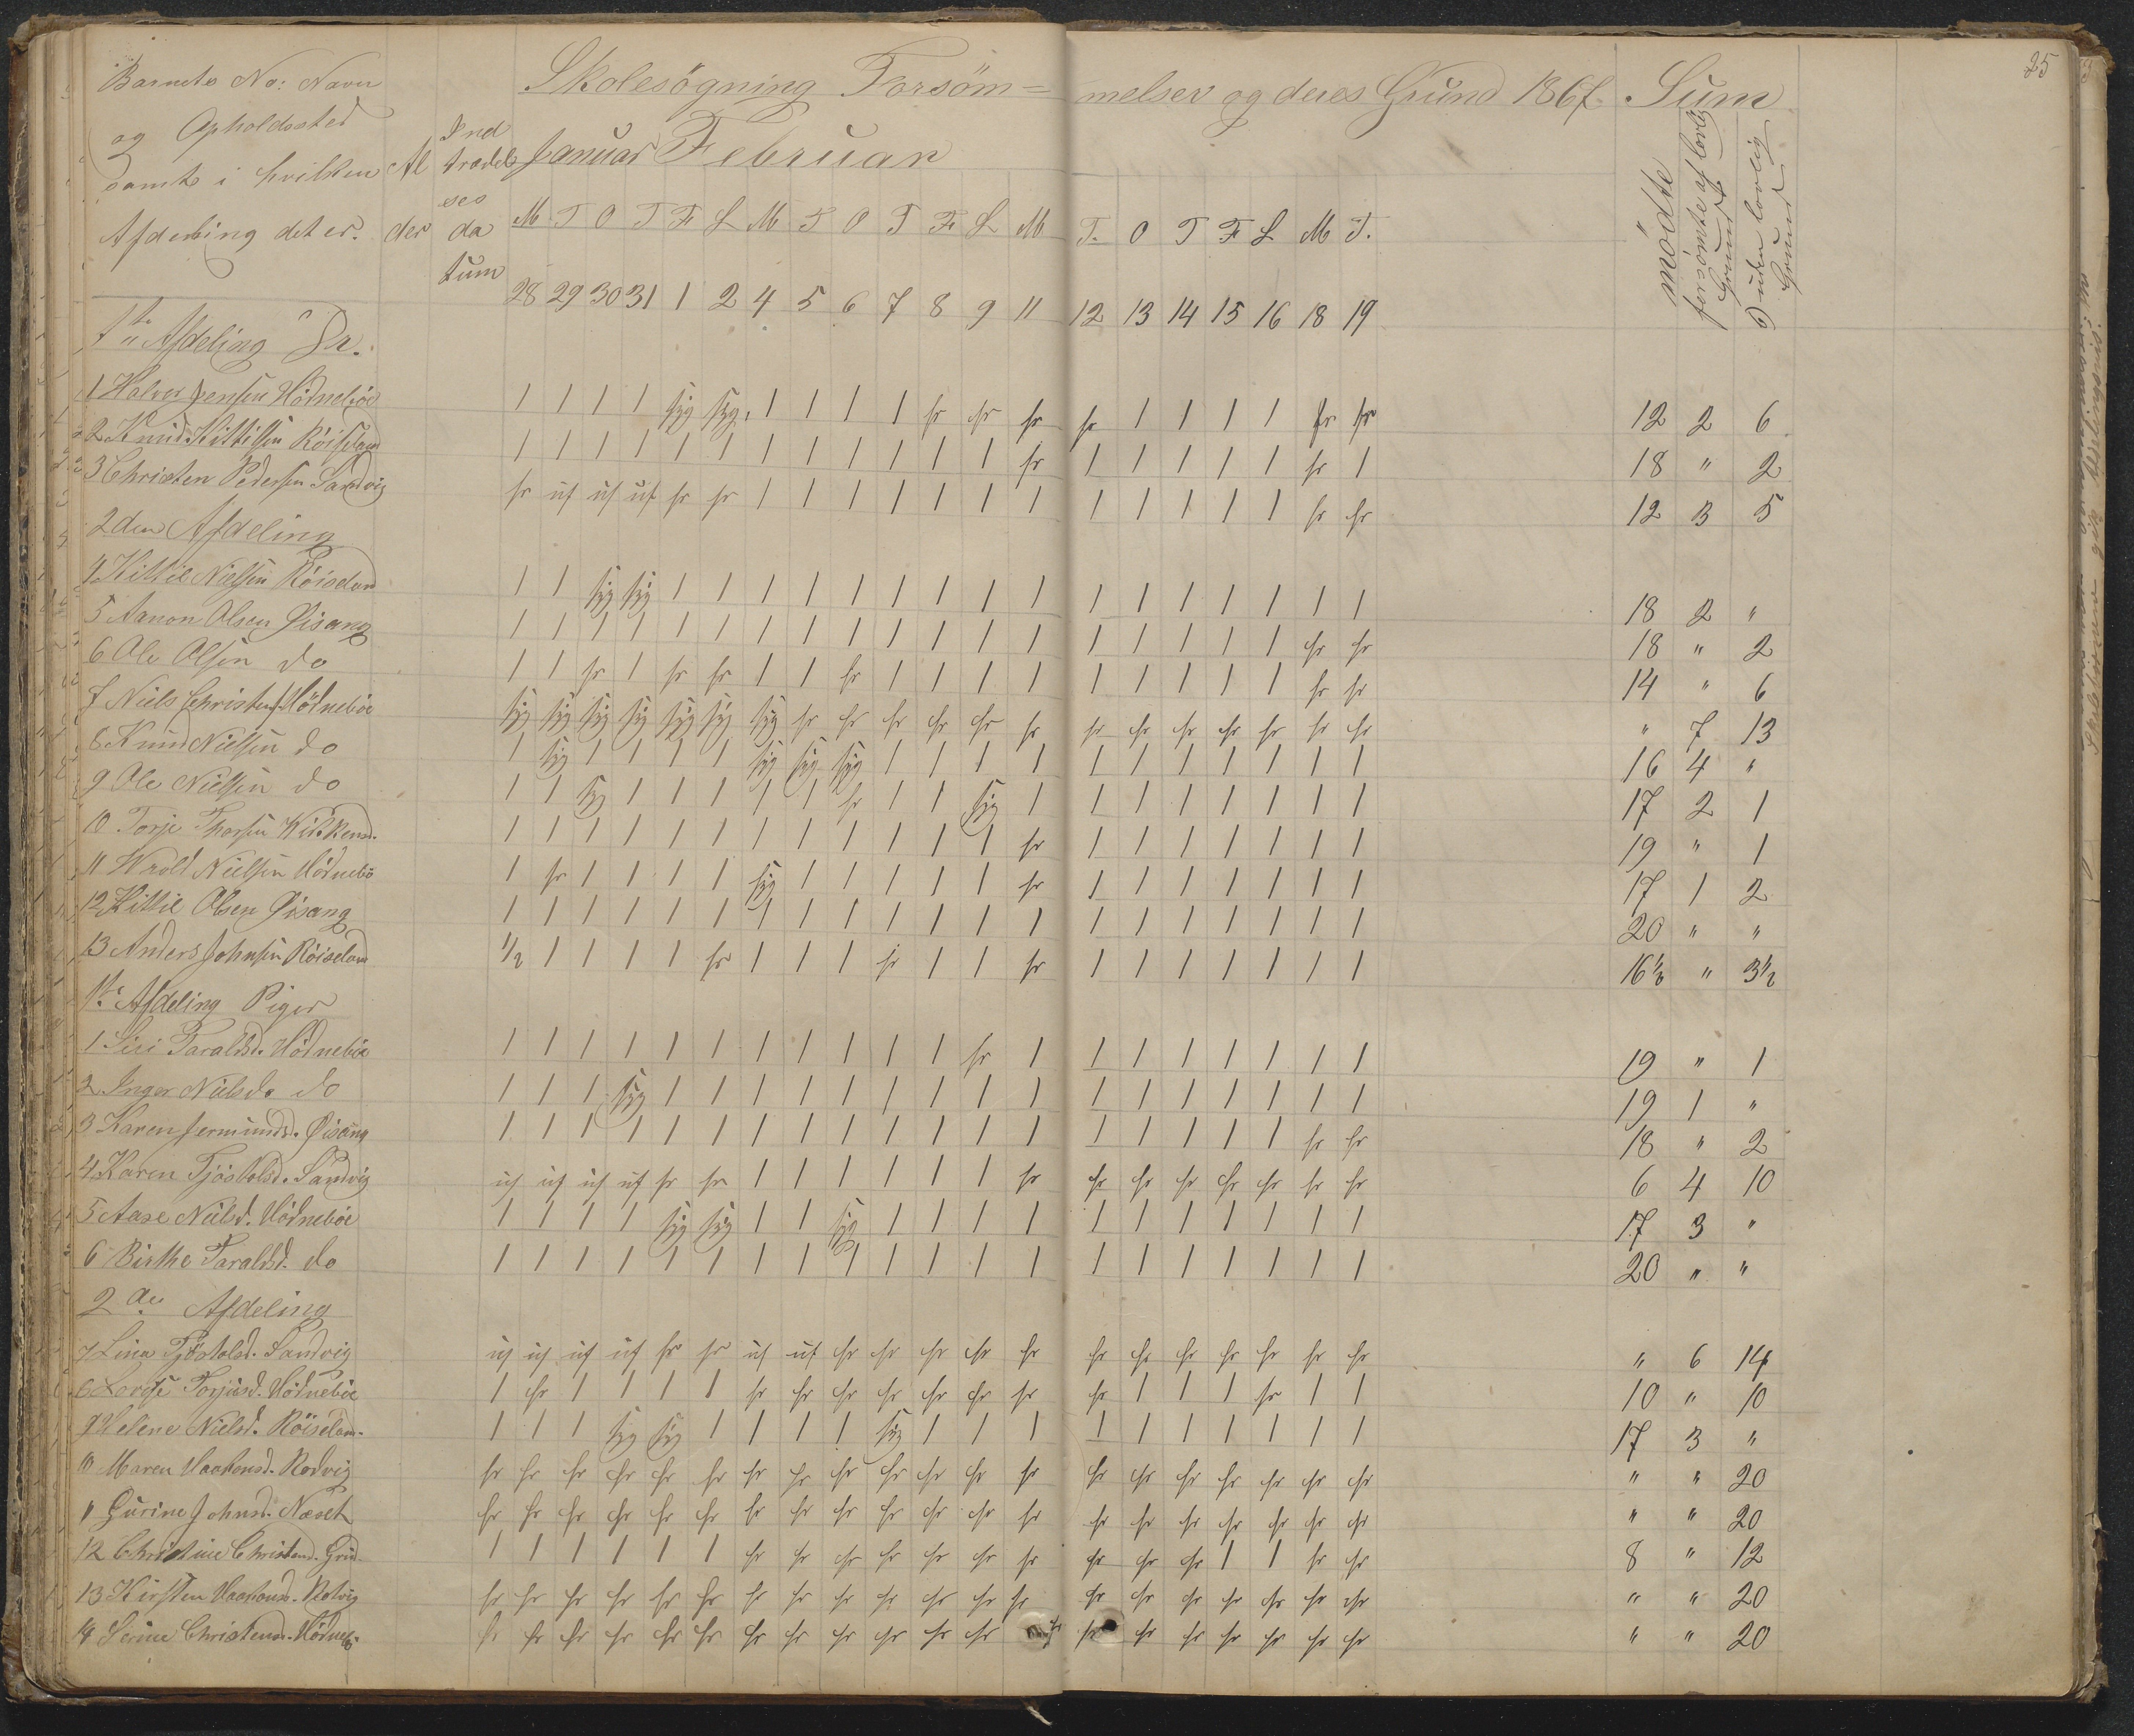 25
Skolesøgning Forsøm= melser og deres Grund 1867. Sum
Barnets No: Navn
og Opholdssted
samt i hvilken
Afdeling det er.
Al der
Ind trædel ses da tum
Januar Februar
mødte
forsømte af lovlig Grund
uden lovlig Grund
M T O T F L M T O T F L M T. O T F L M T.
28 29 30 31 1 2 4 5 6 7 8 9 11 12 13 14 15 16 18 19
1ste Afdeling Gr.
1 Halvor Jensen Hødnebøe 1 1 1 1 syg syg. 1 1 1 1 fr fr fr fr 1 1 1 1 fr fr 12 2 6
2 Knud Kittilsen Røiseland 1 1 1 1 1 1 1 1 1 1 1 1 fr 1 1 1 1 1 fr 1 18 " 2
3 Christen Pedersen Sandvig fr uf uf uf fr fr 1 1 1 1 1 1 1 1 1 1 1 1 fr fr 12 3 5
2den Afdeling
4 Kittil Nielsen Røiseland 1 1 syg syg 1 1 1 1 1 1 1 1 1 1 1 1 1 1 1 1 18 2 "
5 Aanon Olsen Øisang 1 1 1 1 1 1 1 1 1 1 1 1 1 1 1 1 1 1 fr fr 18 " 2
6 Ole Olsen do 1 1 fr 1 fr fr 1 1 fr 1 1 1 1 1 1 1 1 1 fr fr 14 " 6
7 Niels Christens. Hødnebøe syg syg syg syg syg syg syg fr fr fr fr fr fr fr fr fr fr fr fr fr " 7 13
8 Knud Nielsen do 1 syg 1 1 1 1 syg syg syg 1 1 1 1 1 1 1 1 1 1 1 16 4 "
9 Ole Nielsen do 1 1 syg 1 1 1 1 1 fr 1 1 syg 1 1 1 1 1 1 1 1 17 2 1
10 Torje 1 1 1 1 1 1 1 1 1 1 1 1 fr 1 1 1 1 1 1 1 19 " 1
11 Wrold Nielsen Hødnebø 1 fr 1 1 1 1 syg 1 1 1 1 1 fr 1 1 1 1 1 1 1 17 1 2
12 Kittil Olsen Øisang 1 1 1 1 1 1 1 1 1 1 1 1 1 1 1 1 1 1 1 1 20 " "
13 Anders Johnsen Røiseland 1/2 1 1 1 1 fr 1 1 1 fr 1 1 fr 1 1 1 1 1 1 1 16 1/2 " 3 1/2
1ste Afdeling Piger
1 Siri Taraldsd. Hødnebøe 1 1 1 1 1 1 1 1 1 1 1 fr 1 1 1 1 1 1 1 1 19 " 1
2 Inger Nielsd. do 1 1 1 syg 1 1 1 1 1 1 1 1 1 1 1 1 1 1 1 1 19 1 "
3 Karen Jermunds. Øisang 1 1 1 1 1 1 1 1 1 1 1 1 1 1 1 1 1 1 fr fr 18 " 2
4 Karen Tjøstolsd. Sandvig uf uf uf uf fr fr 1 1 1 1 1 1 fr fr fr fr fr fr fr fr 6 4 10
5 Aase Nielsd. Hødnebøe 1 1 1 1 syg syg 1 1 syg 1 1 1 1 1 1 1 1 1 1 1 17 3 "
6 Birthe Taraldsd. do 1 1 1 1 1 1 1 1 1 1 1 1 1 1 1 1 1 1 1 1 20 " "
2de Afdeling
7 Lina Tjøstolsd. Sandvig uf uf uf uf fr fr uf uf fr fr fr fr fr fr fr fr fr fr fr fr " 6 14
Torjusd. Hødnebøe 1 fr 1 1 1 1 fr fr fr fr fr fr fr fr 1 1 1 fr 1 1 10 " 10
9 Helene Nielsd. Røiseland. 1 1 1 syg syg 1 1 1 1 syg 1 1 1 1 1 1 1 1 1 1 17 3 "
10 Maren Haakonsd. Rødvig fr fr fr fr fr fr fr fr fr fr fr fr fr fr fr fr fr fr fr fr " " 20
11 Gurine Johnsd. Næset fr fr fr fr fr fr fr fr fr fr fr fr fr fr fr fr fr fr fr fr " " 20
12 Christine Christensd. 1 1 1 1 1 1 fr fr fr fr fr fr fr fr fr fr 1 1 fr fr 8 " 12
13 Kirsten Haakonsd. fr fr fr fr fr fr fr fr fr fr fr fr fr fr fr fr fr fr fr fr " " 20
14 Christensd. Hødnebø fr fr fr fr fr fr fr fr fr fr fr fr fr fr fr fr fr fr fr " " 20